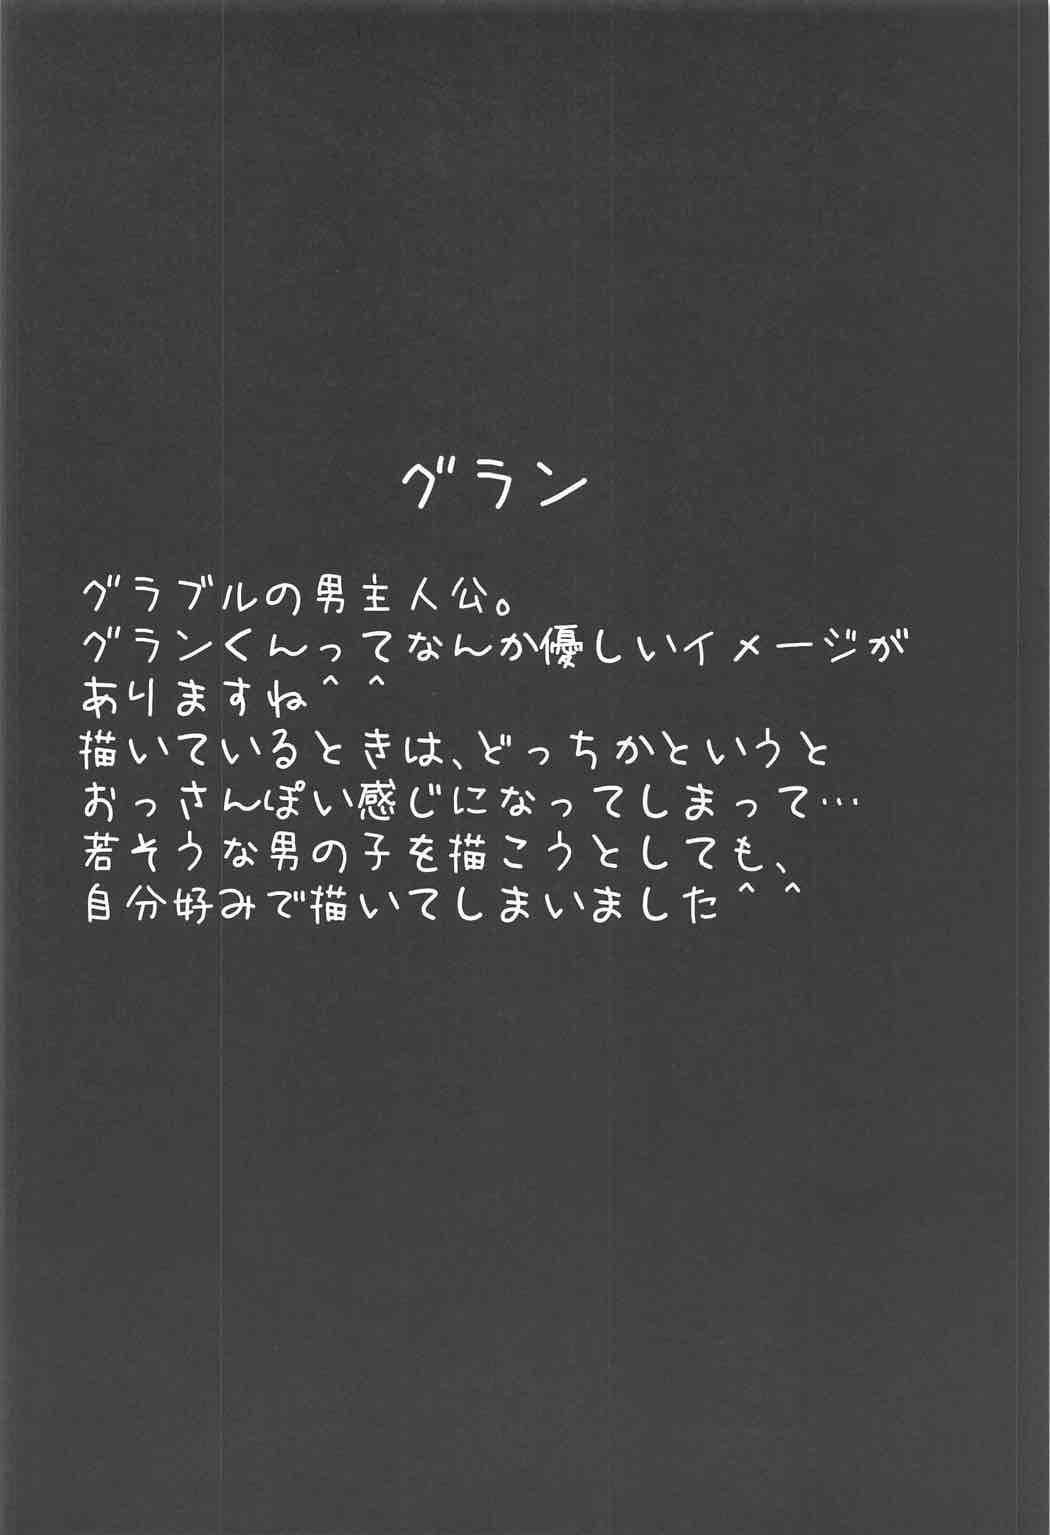 グラン
グラブルの男主人公。
グランくんってなんか優しいイメージが
ありますね＾＾
描いているときは、どっちかというと
おっさんぽい感じになってしまって…
若そうな男の子を描こうとしても、
自分好みで描いてしまいました＾＾